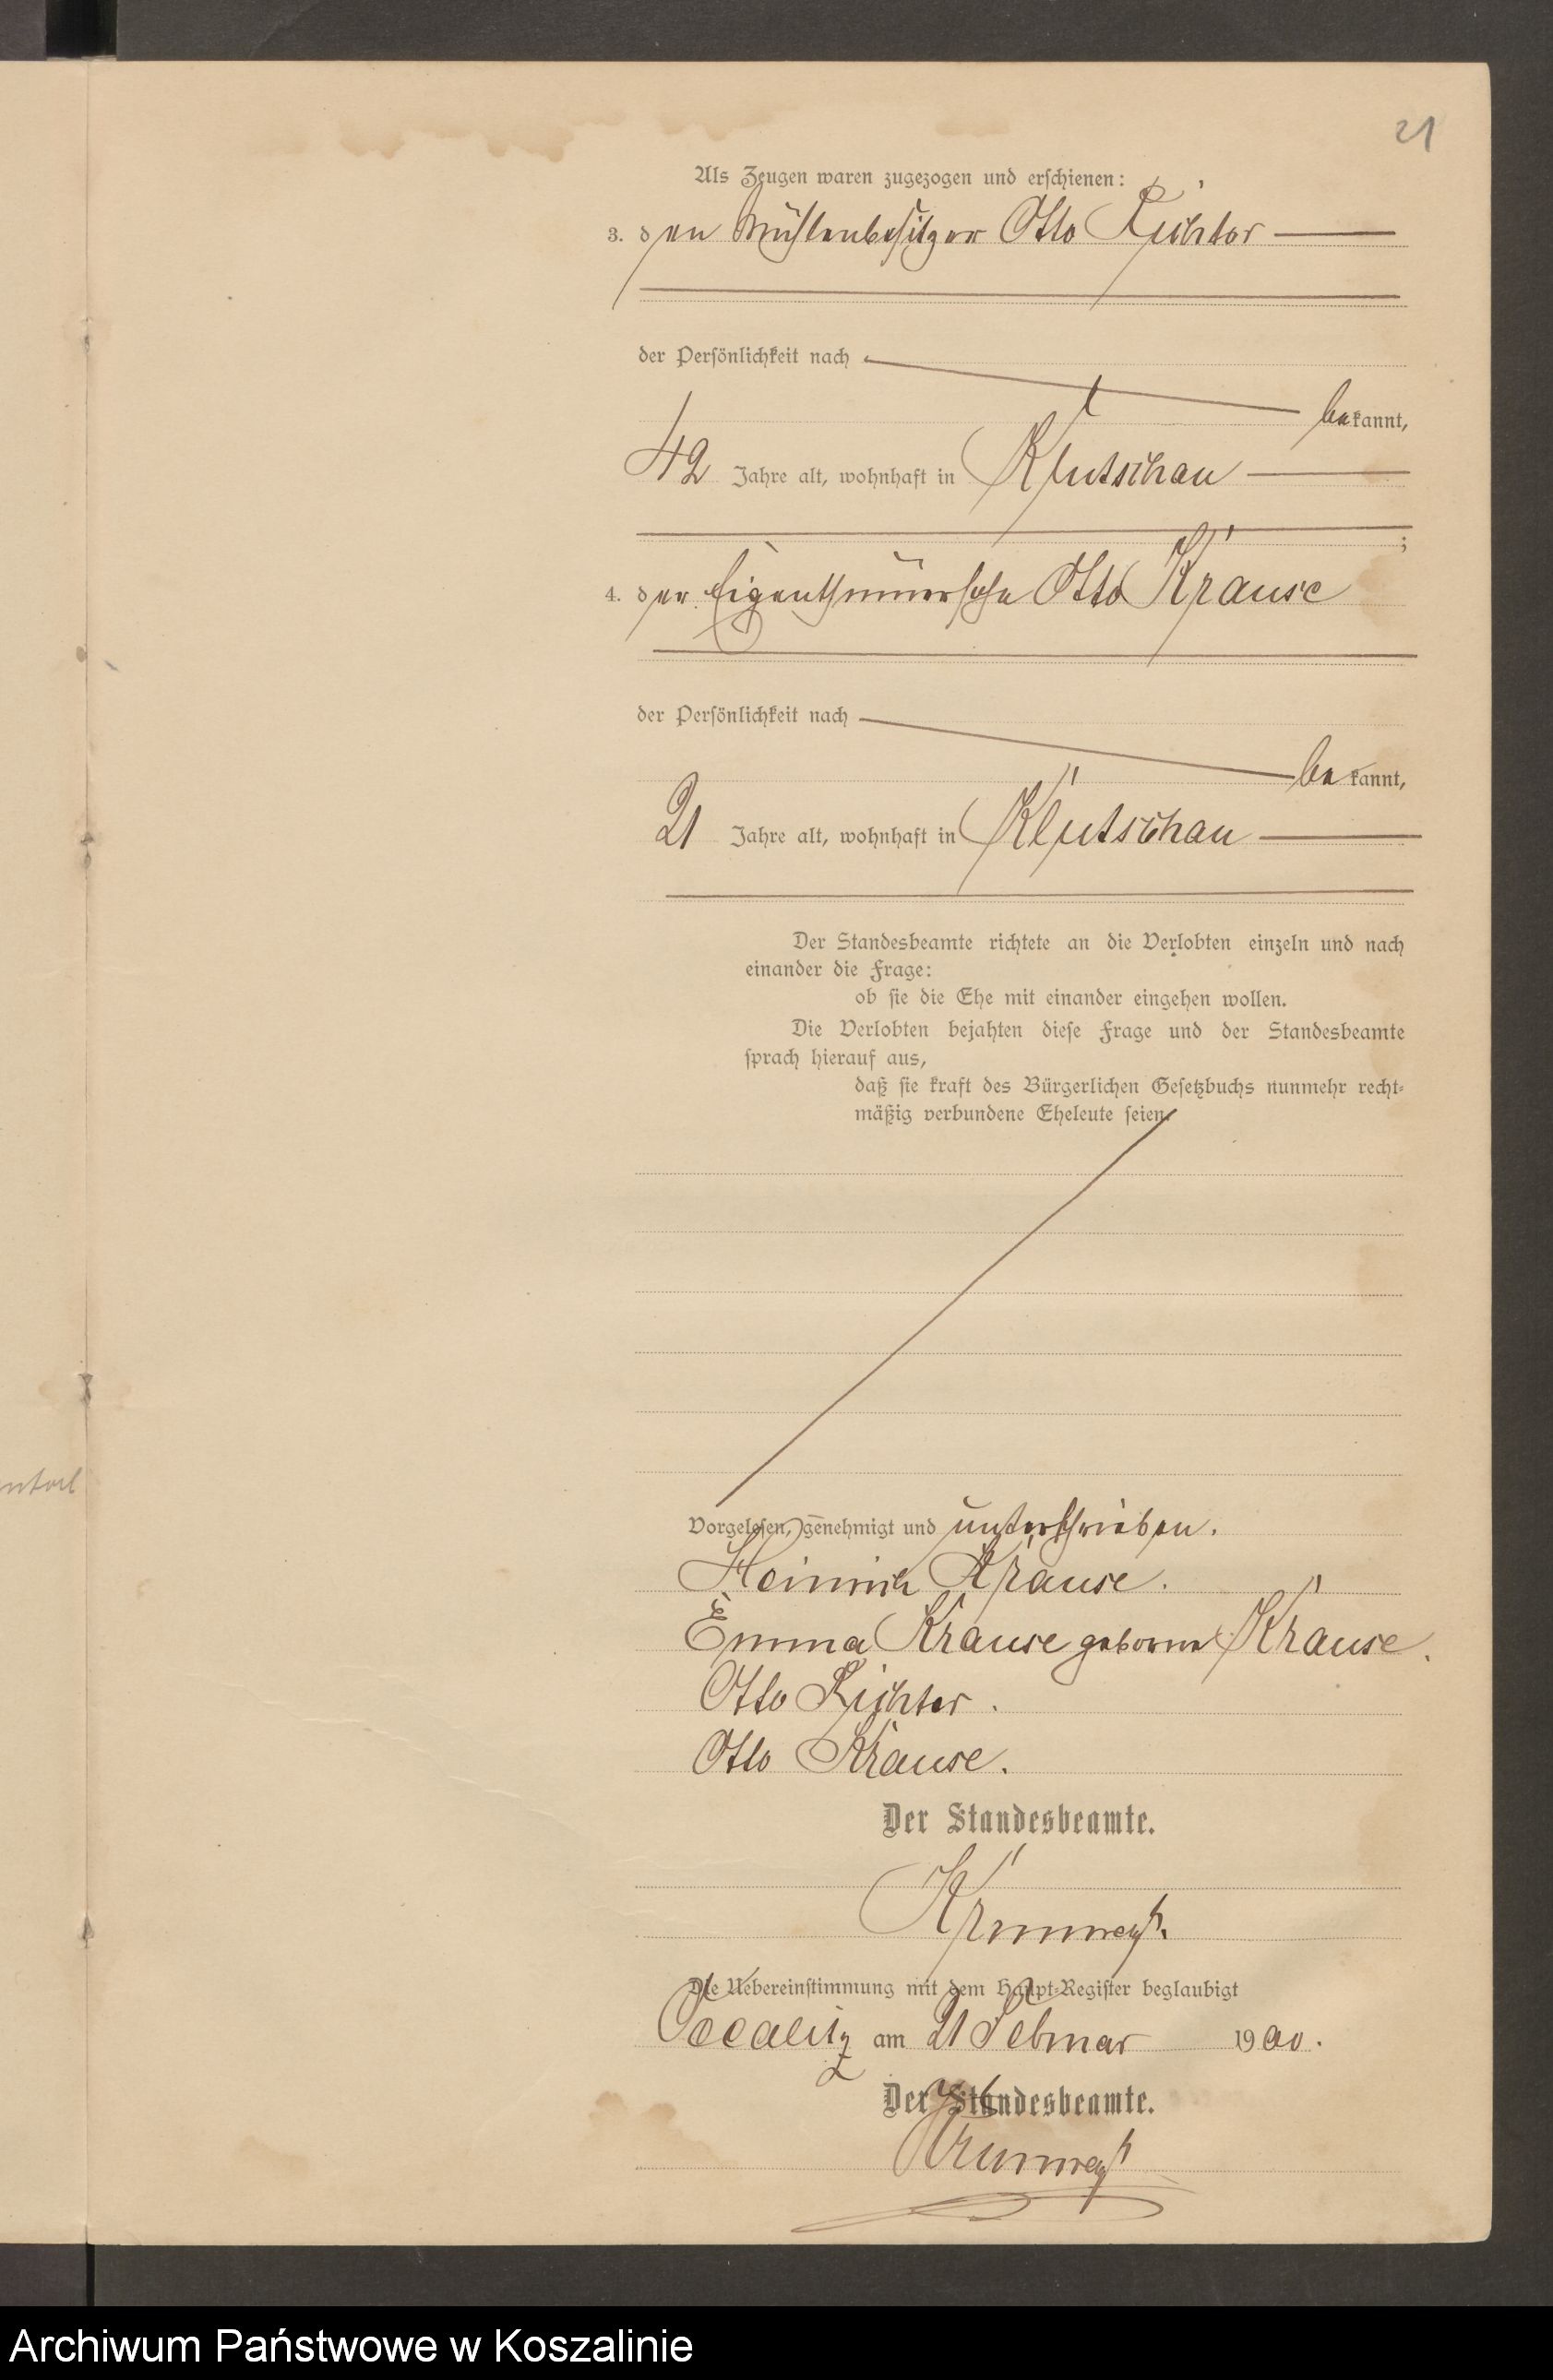 21
Als Zeugen waren zugezogen und erschienen:
3. den Mühlenbesitzer Otto Richter
der Persönlichkeit nach
bekannt,
42 Jahre alt, wohnhaft in Klutschau
;
4. der Eigenthümersohn Otto Krause
der Persönlichkeit nach
bekannt,
21 Jahre alt, wohnhaft in Klutschau
Der Standesbeamte richtete an die Verlobten einzeln und nach
einander die Frage:
ob sie die Ehe mit einander eingehen wollen.
Die Verlobten bejahten diese Frage und der Standesbeamte
sprach hierauf aus,
daß sie kraft des Bürgerlichen Gesetzbuchs nunmehr recht-
mäßig verbundene Eheleute seien.
Vorgelesen, genehmigt und unterschrieben.
Heinrich Krause.
Emma Krause geborne Krause.
Otto Richter.
Otto Krause.
Der Standesbeamte.
Die Uebereinstimmung mit dem Haupt-Register beglaubigt
am 21 Februar 1900.
Der Standesbeamte.
Archiwum Państwowe w Koszalinie